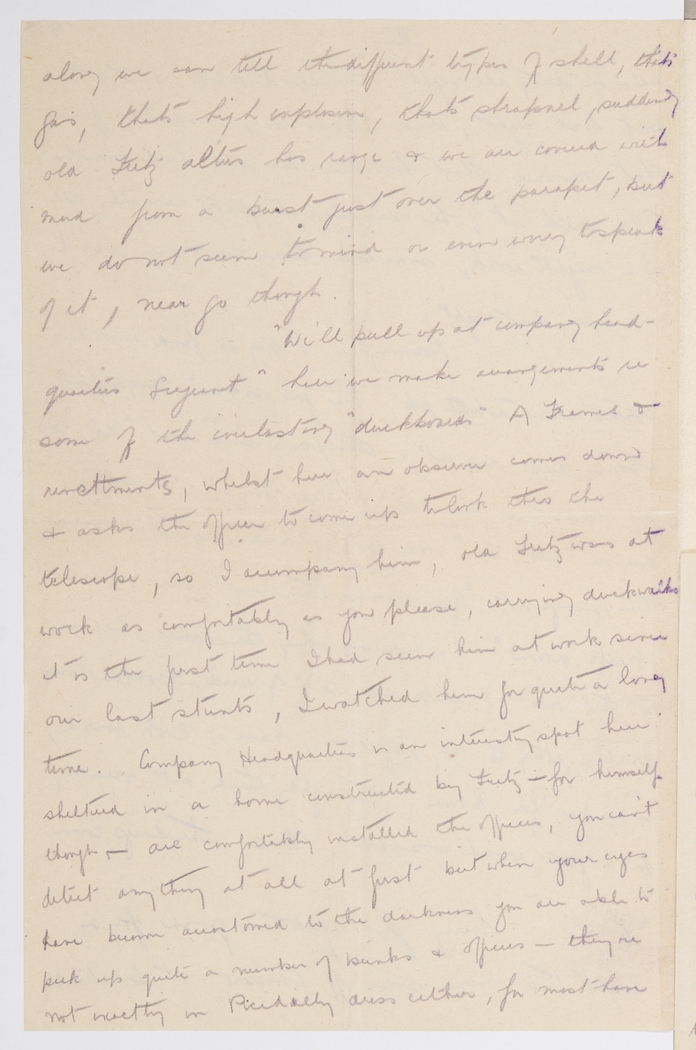 along we can tell the different types of shell, thats
gas, thats high explosive, thats shrapnel, suddenly
old Fritz alters his range & we are covered with
mud from a burst just over the parapet, but
we do not seem to mind or even worry to speak
of it, near go though.
"We'll pull up at company head-
quarters Sergeant" here we make arrangements re
some of the everlasting "duckboards" A Frames &
revettments, whilst here an observer comes down
& asks the officer to come up to look thro the
telescope, so I accompany him, old Fritz was at
work as comfortably as you please, carrying duckwalks
it is the first time I had seen him at work since
our last stunts, I watched him for quite a long
time. Company Headquarters is an interesting spot here
sheltered in a home constructed by Fritz – for himself
though – are comfortably installed the officers, you can't
detect anything at all at first but when your eyes
have become accustomed to the darkness you are able to
pick up quite a number of bunks & officers – they're
not exactly in Picadally dress either, for most have